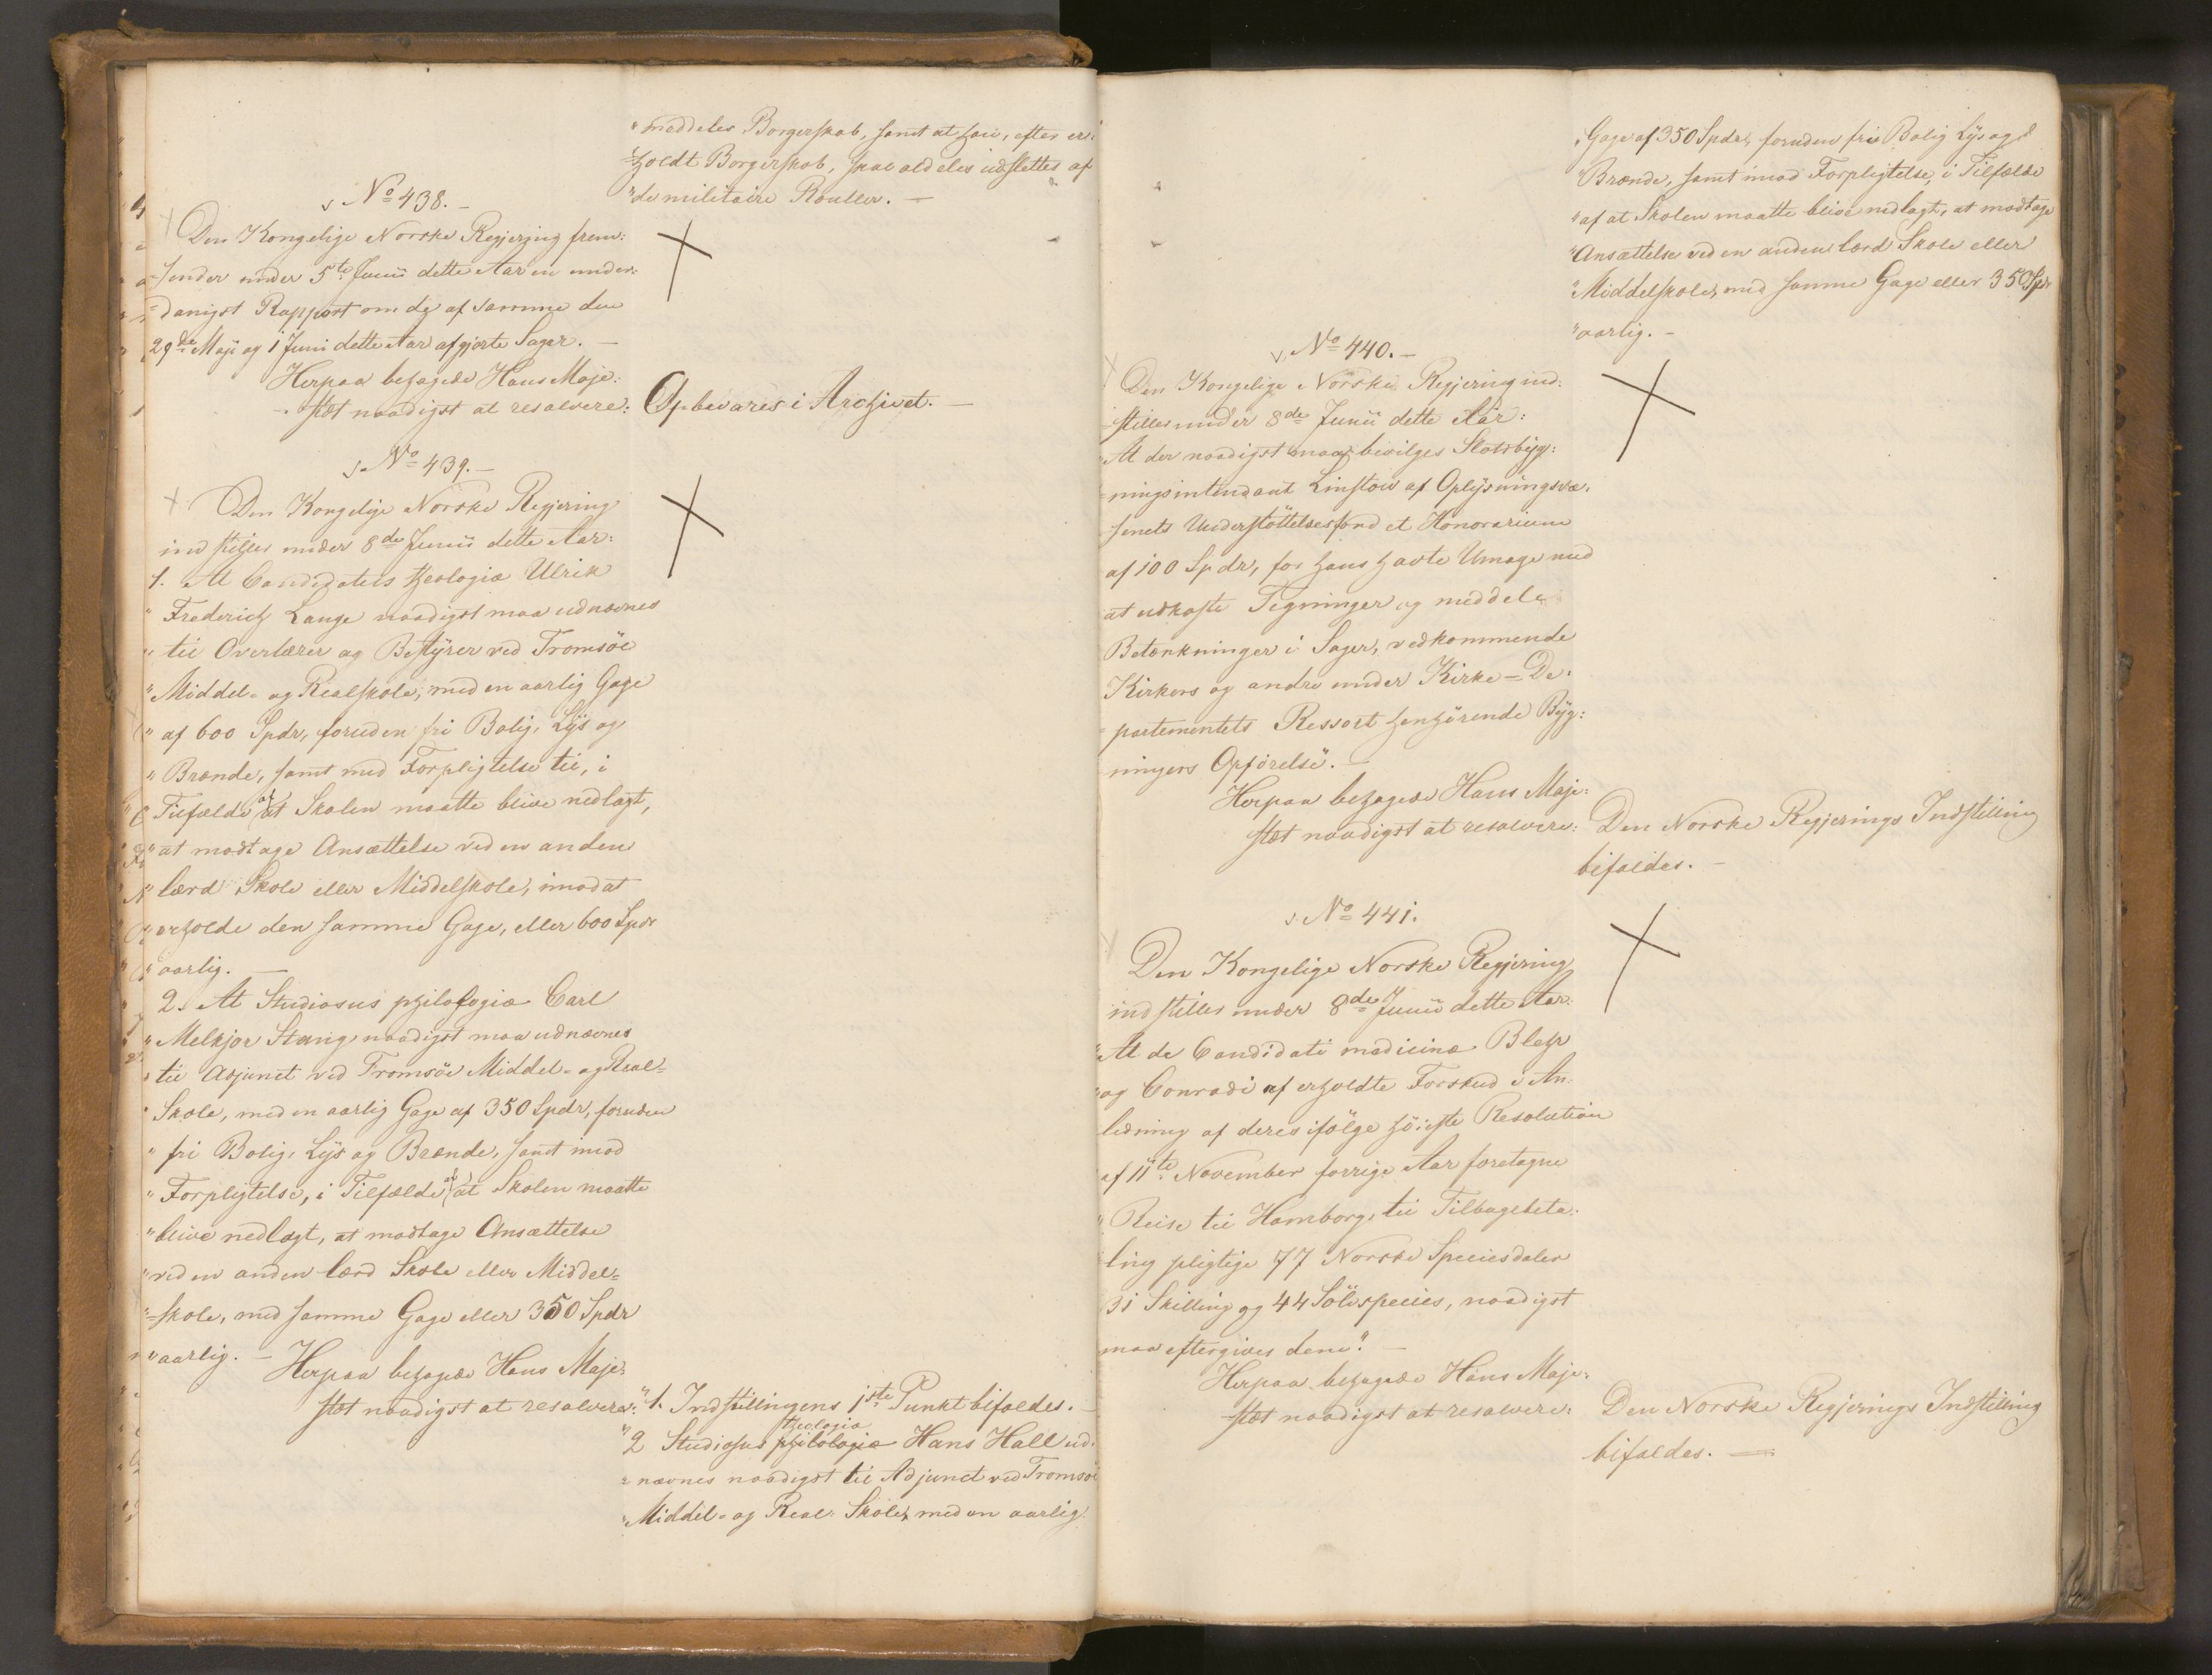 "meddeles Borgerskab, samt at han, efter er:
=holdt Borgerskab, skal aldeles udslettes af
"de militaire Rouller. —
No 438. —
Den Kongelige Norske Regjering frem:
=sender under 5te Junii dette Aar en under:
=danigst Rapport om de af samme den
29de Maji og 1 Junii dette Aar afgjorte Sager. —
Herpaa behagede Hans Maje:
=stæt naadigst at resolvere:
Opbevares i Archivet. —
No 439. —
Den Kongelige Norske Regjering
indstiller under 8de Junii dette Aar:
1. At Candidatus theologiæ Ulrik
" Frederich Lange naadigst maa udnævnes
" til Overlærer og Bestÿrer ved Tromsöe
" Middel- og Realskole, med en aarlig Gage
" af 600 Spdr, foruden fri Bolig, Lÿs og
" Brænde, samt mod Forpligtelse til, i
Tilfælde af at Skolen maatte blive nedlagt,
" at modtage Ansættelse ved en anden
" lærd Skole eller Middelskole, imod at
erholde den samme Gage, eller 600 Spdr
" aarlig. —
2. At Studiosus philologiæ Carl
" Melchjor Stang naadigst maa udnævnes
" til Adjunct ved Tromsöe Middel- og Real-
" Skole, med en aarlig Gage af 350 Spdr, foruden
" fri Bolig, Lÿs og Brænde, samt imod
" Forpligtelse, i Tilfælde af at Skolen maatte
" blive nedlagt, at modtage Ansættelse
" ved en anden lærd Skole eller Middel-
"=skole, med samme Gage eller 350 Spdr
" aarlig. — Herpaa behagede Hans Maje:
stæt naadigst at resolvere:
"1. Indstillingens 1ste Punkt bifaldes. —
theologiæ
"2 Studiosus philologiæ Hans Hall ud:
=nævnes naadigst til Adjunct ved Tromsöe
"Middel- og Real- Skole, med en aarlig
"Gage af 350 Spdr, foruden fri Bolig Lÿs og
"Brænde, samt imod Forpligtelse, i Tilfælde
"af at Skolen maatte blive nedlagt, at modtage
"Ansættelse ved en anden lærd Skole eller
"Middelskole, med samme Gage eller 350 Spdr
"aarlig. —
No 440. —
Den Kongelige Norske Regjering ind:
=stiller under 8de Junii dette Aar:
"At der naadigst maa bevilges Slotsbÿg:
=ningsintendant Linstow af Oplÿsningsvæ:
=senets Understöttelsesfond et Honorarium
af 100 Spdr, for hans havte Umage med
at udkaste Tegninger og meddele
Betænkninger i Sager, vedkommende
Kirkers og andre under Kirke-De:
=partementets Ressort henhörende Bÿg:
ningers Opförelse". —
Herpaa behagede Hans Maje:
stæt naadigst at resolvere:
Den Norske Regjerings Indstilling
bifaldes. —
No 441.
Den Kongelige Norske Regjering
indstiller under 8de Junii dette Aar:
"At de Candidati medicinæ Blegr
"og Conradi af erholdte Forskud i An:
ledning af deres ifölge höieste Resolution
af 11te November forrige Aar foretagne
" Reise til Hamborg, til Tilbagebeta:
ling pligtige 77 Norske Speciesdaler
31 Skilling og 44 Sölvspecies, naadigst
maa eftergives dem". —
Herpaa behagede Hans Maje:
=stæt naadigst at resolvere:
Den Norske Regjerings Indstilling
bifaldes. —